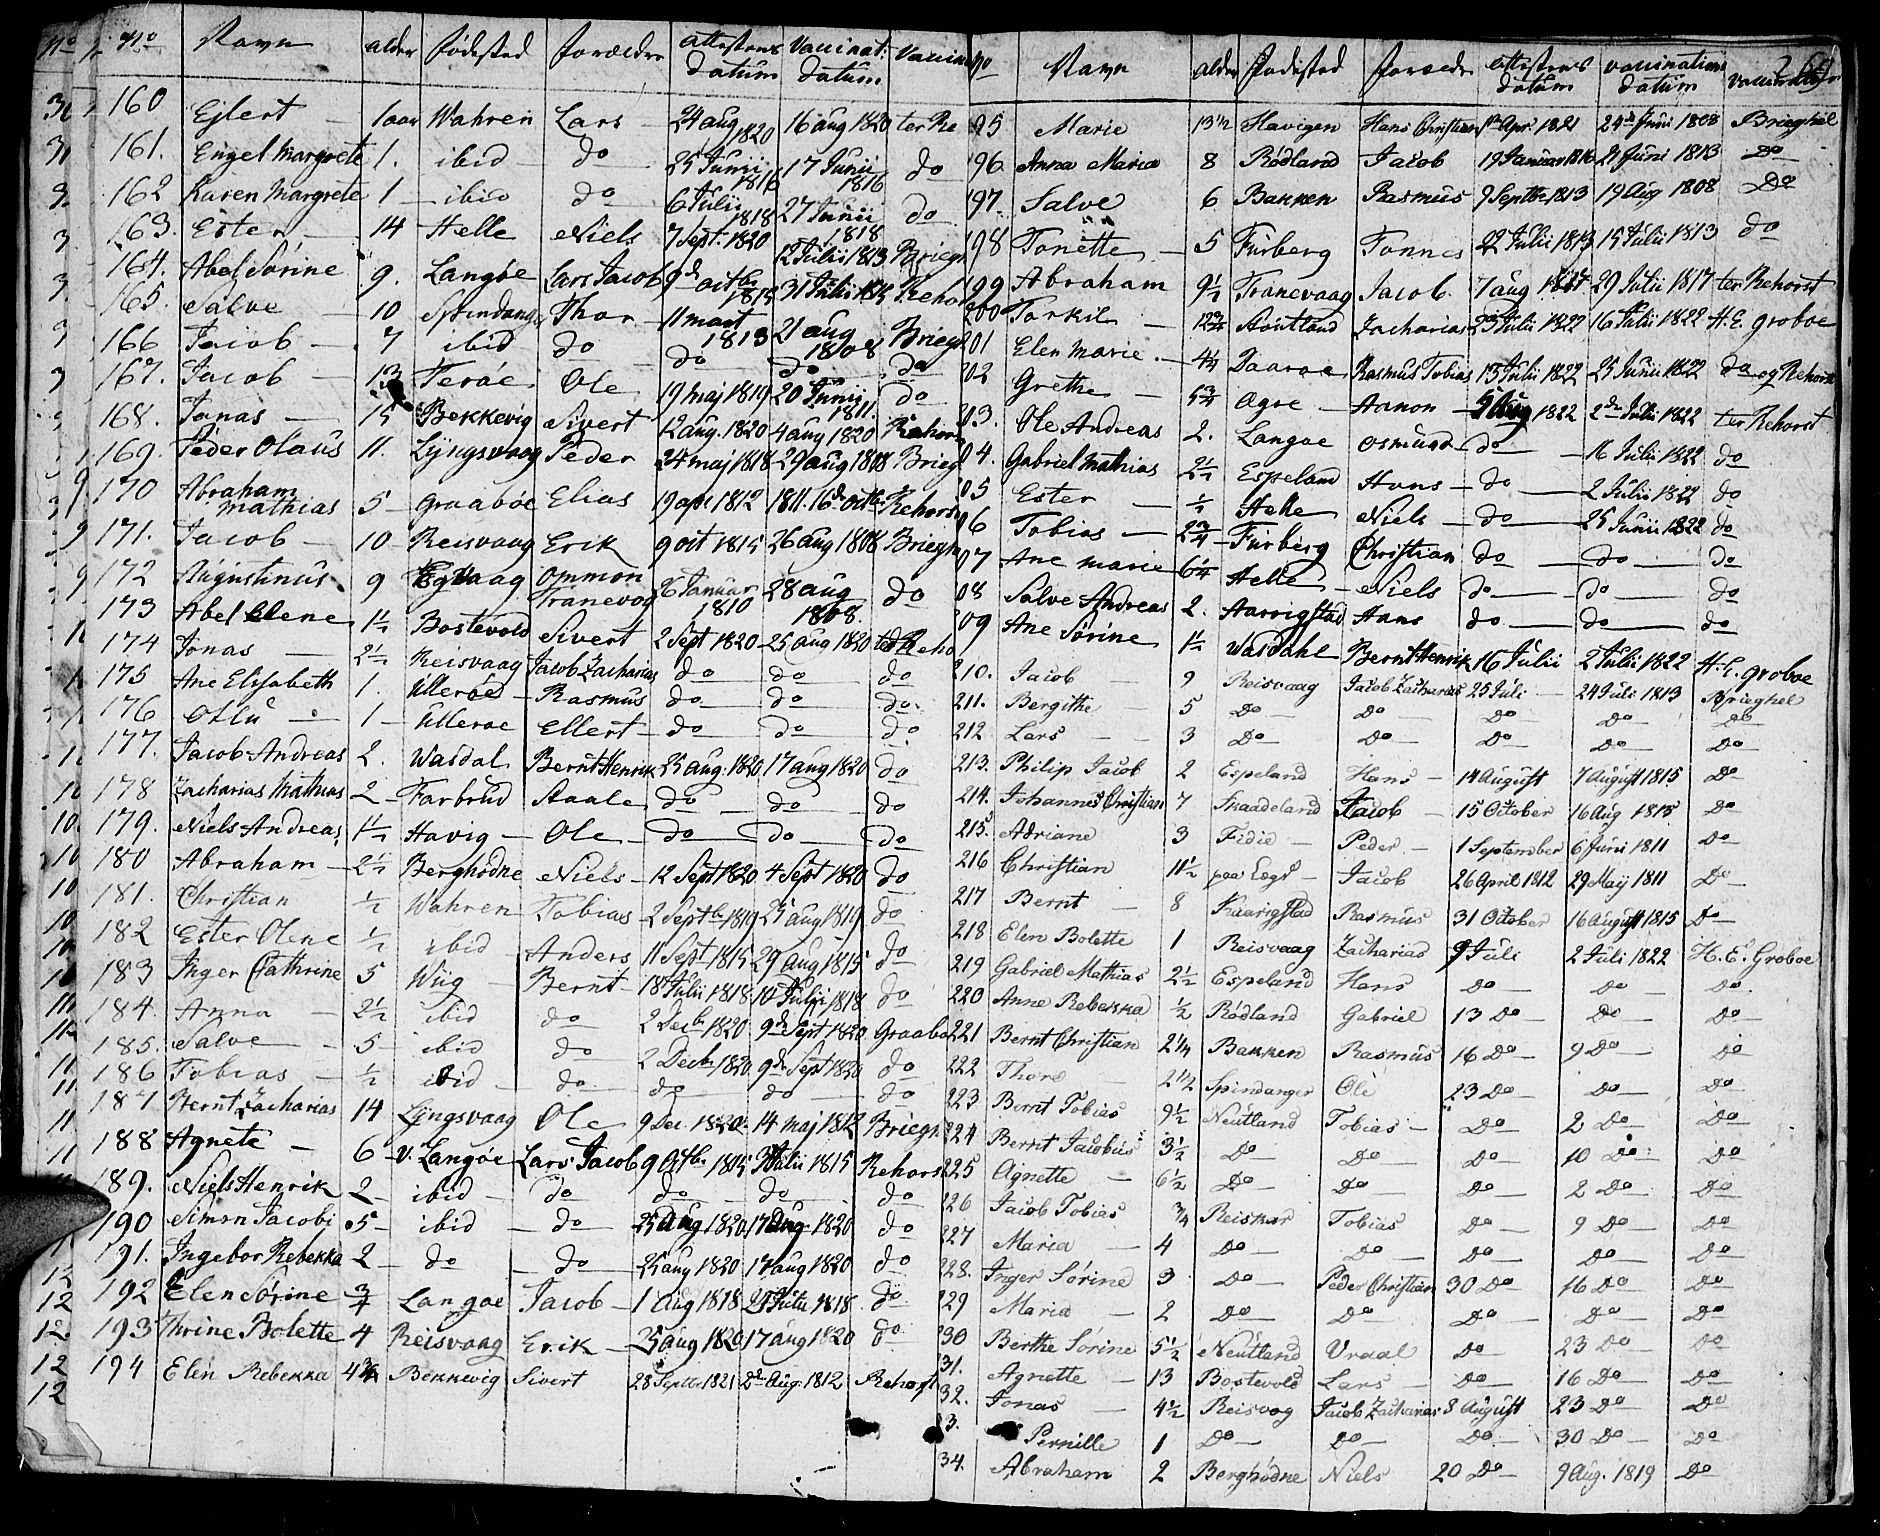 No Navn alder Fødested Forældre attestens datum Vaccinat: datum Vaccina
160 Ejlert 1 aar Wahren Lars 24 aug 1820 16 aug 1820 ter Re
161. Engel Margrete 1. ibid do 25 Junii 1816 17 Junii 1816 do
162 Karen Margrete 1 ibid do 6 Julii 1818 27 Junii 1818 do
163. Ester 14 Helle Niels 7 Sept. 1820 12 Julii 1813 Briegh
164. Abel Sørine 9. Langøe Lars Jacob 9de octbr 1815 31 Julii 1815 Rehor
165. Salve 10 Spindange Thor 11 mart 1813 21 aug 1808 Briegh
166 Jacob 7 ibid do do do do
167. Jacob 13 Ferøe Ole 19 maj 1819 20 Junii 1811. do
168. Jonas 15 Bekkevig Sivert 12 aug. 1820 4 aug 1820 Rehors
169. Peder Olaus 11. Lyngsvaag Peder 24 maj 1818 29 aug 1808 Brieg
170 Abraham Mathias 5 Graabøe Elias 19 apr 1812 1811. 16de octbr Rehors
171. Jacob 10 Reisvaag Erik 9 oct 1815 26 aug 1808 Briegh
172 Augustinus 9 Egvaag Ommon Tranevog 26 Januar 1810 28 aug 1808. do
173 Abel Elene 1½ Bostevold Sivert 2 Sept 1820 25 aug 1820 ter Reho
174 Jonas 2½ Reisvaag Jacob Zacharias do do do
175 Ane Elisabeth 1. Ullerøe Rasmus do do do.
176 Ottu 1 Ullerøe Ellert do do do
177. Jacob Andreas 2. Wasdal Bernt Henrik 25 aug. 1820 17 aug 1820 do
178 Zacharias Mathias 2 Farbrud Staale do do do
179. Niels Andreas 1½ Havig Ole do do do
180 Abraham 2½ Berghødne Niels 12 Sept 1820 4 Sept 1820 do
181. Christian ½ Wahren Tobias 2 Septbr 1819 25 aug 1819 do
182 Ester Olene ½ ibid Anders 11 Sept 1815 29 aug 1815 do
183 Inger Cathrine 5 Wiig Bernt 18 Julii 1818 10 Julii 1818 do
184. Anna 2½ ibid do 2 Decbr 1820. 9de Sept 1820 Graabo
185. Salve 5 ibid do 2 Decbr 1820. 9de Sept 1820 do
186 Tobias ½ ibid do do do do
187 Bernt Zacharias 14 Lyngsvaag Ole 9 Dec 1820. 14 maj 1812 Briegh
188 Agnete 6 v. Langøe Lars Jacob 9 Octbr 1815 31 Julii 1815 Rehorst
189. Niels Henrik 2 ibid do do do do
190 Simon Jacobi 5 ibid do 25 Aug 1820 17 Aug 1820 do
191. Ingebor Rebekka 2 do do 25 aug 1820 17 aug 1820 do
192 Elen Sørine ¾ Langøe Jacob 1 Aug 1818 21 Julii 1818. do
193 Thrine Bolette 4 Reisvaag Erik 25 aug 1820 17 aug 1820 do
194 Elen Rebekka 4¾ Bekkevig Sivert 28 Septbr 1821 2de Aug. 1812 Rehorst
No Navn alder Fødested Forældre attestens datum vaccinations datum
95 Marie 13½ Havigen Hans Christian 1st Apr 1821 24de Junii 1808 Brieghel
96. Anna Maria 8 Rødland Jacob 19 Januar 1816 21 Juni 1813 Do
97. Salve 6 Bakken Rasmus 9 Septbr 1813 19 Aug 1808 Do
98 Tonette 5 Furberg Tonnes 22 Julii 1813 15 Julii 1813 do
99 Abraham 9½ Tranevaag Jacob. 7 aug 1817 29 Julii 1817 ter Rehorst
200 Torkil 12¾ Støutland Zacharias 23 Julii 1822 16 Julii 1822 H. E. Groboe
201 Elen Marie. 4¼ Daarøe Rasmus Tobias 13 Julii 1822 25 Junii 1822 do og Rehorst
02 Grethe 5¾ Ogre Aanon 9 Aug 1822 2de Julii 1822 ter Rehorst
03. Ole Andreas 2. Langøe Osmund do 16 Julii 1822 do
04. Gabriel Mathias 2½ Espeland Hans do 2 Julii 1822 do
05 Ester ½ Helle Niels do 25 Junii 1822 do
06 Tobias 2¾ Furberg Christian do do do
07 Ane Marie 6¼ Helle Niels do do do
08 Salve Andreas 2. Aarrigstad Hans do do do
09 Ane Sørine 1½ Wasdahl Bernt Henrik 16 Julii 2 Julii 1822 H. E. Groboe
210. Jacob 9 Reisvaag Jacob Zacharias 25 Juli 24 Juli 1813 Brieghel
211. Bergithe 5 Do Do Do Do Do
212 Lars 3 Do Do Do Do Do
213. Philip Jacob 2 Espeland Hans 14 August 7 August 1815 Do
214. Johannes Christian 7 Skaadeland Jacob 15 October 16 Aug 1815 Do
215. Adriane 3 Fidie Peder 1 September 6 Juni 1811 Do
216 Christian 11½ paa Lægd Jacob 26 April 1812 29 Maÿ 1811 Do
217 Bernt 8 Kaarigstad Rasmus 31 October 16 August 1815 Do
218 Elen Bolette 1 Reisvaag Zacharias 9 Juli 2 Juli 1822 H. E. Groboe
219 Gabriel Mathias 2½ Espeland Hans Do Do Do.
220 Anne Rebekka ½ Rødland Gabriel 13 Do Do Do
221 Bernt Christian 2¼ Bakken Rasmus 16 Do 9 Do Do
222 Thore 2½ Spindanger Ole 23 Do Do Do
223 Bernt Tobias 9½ Neutland Tobias Do 2 Do Do
224 Bernt Jacobus 3½ Do Do Do 10 Do Do
225 Agnette 6½ Do Do Do 2 Do Do
226 Jacob Tobias ¾ Reiskar Tobias Do 9 Do Do
227 Maria 4 Do Do Do Do Do
228. Inger Sørine 3 Do Peder Christian 30 Do 16 Do Do
229 Maria 2 Do Do Do Do Do
230 Berthe Sørine 5½ Neutland Vraal Do 23 Do Do
31. Agnette 13 Bostevold Lars Do 16 Do Do
32. Jonas 4½ Reisvog Jacob Zacharias 8 August 23 Do Do
3. Pernille 1 Do Do Do 30 Do Do
34. Abraham 2 Berghødne Niels 20 Do 9 Aug. 1819 Do